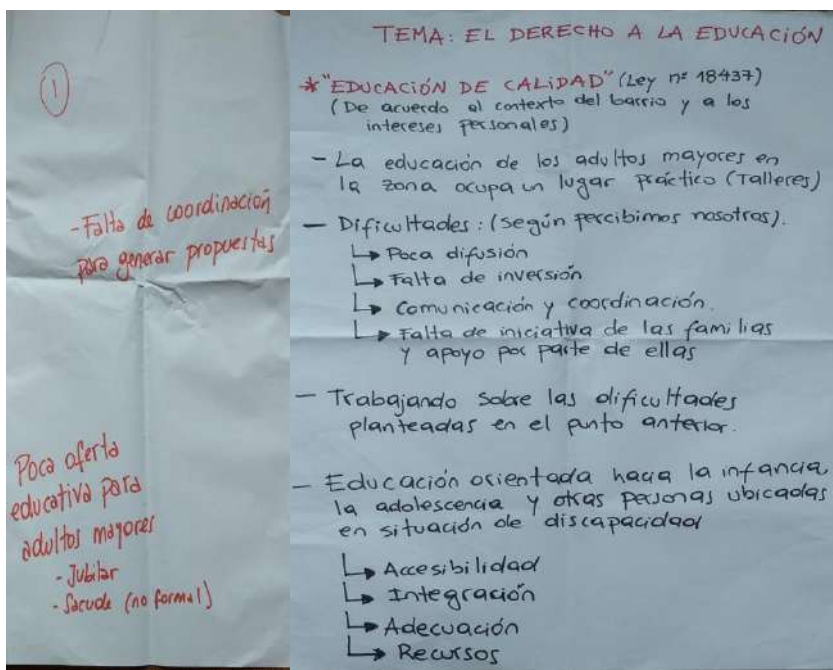 1
- Falta de coordinación
para generar propuestas
Poca oferta
educativa para
adultos mayores
- Jubilar
- Sacude (no formal)
TEMA: EL DERECHO A LA EDUCACIÓN
* "EDUCACIÓN DE CALIDAD" (Ley nº 18437)
(De acuerdo al contexto del barrio y a los
intereses personales)
- La educación de los adultos mayores en
la zona ocupa un lugar práctico (Talleres)
- Dificultades: (según percibimos nosotros).
↳ Poca difusión
↳ Falta de inversión
↳ Comunicación y coordinación.
↳ Falta de iniciativa de las familias
y apoyo por parte de ellas
- Trabajando sobre las dificultades
planteadas en el punto anterior.
- Educación orientada hacia la infancia,
la adolescencia y otras personas ubicadas
en situación de discapacidad
↳ Accesibilidad
↳ Integración
↳ Adecuación
↳ Recursos